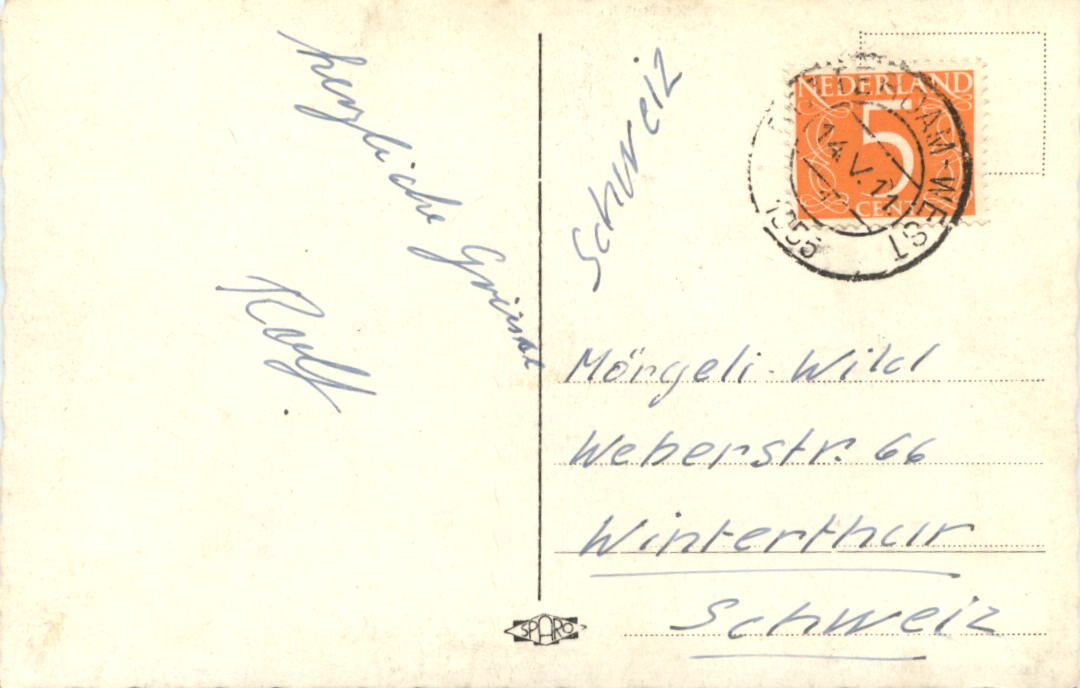 herzliche Grüsse
Rolf.
Schweiz
NEDERLAND
5
CENT
14.V.11
1956
Mörgeli-Wild
Weberstr. 66
Winterthur
Schweiz
SPARO